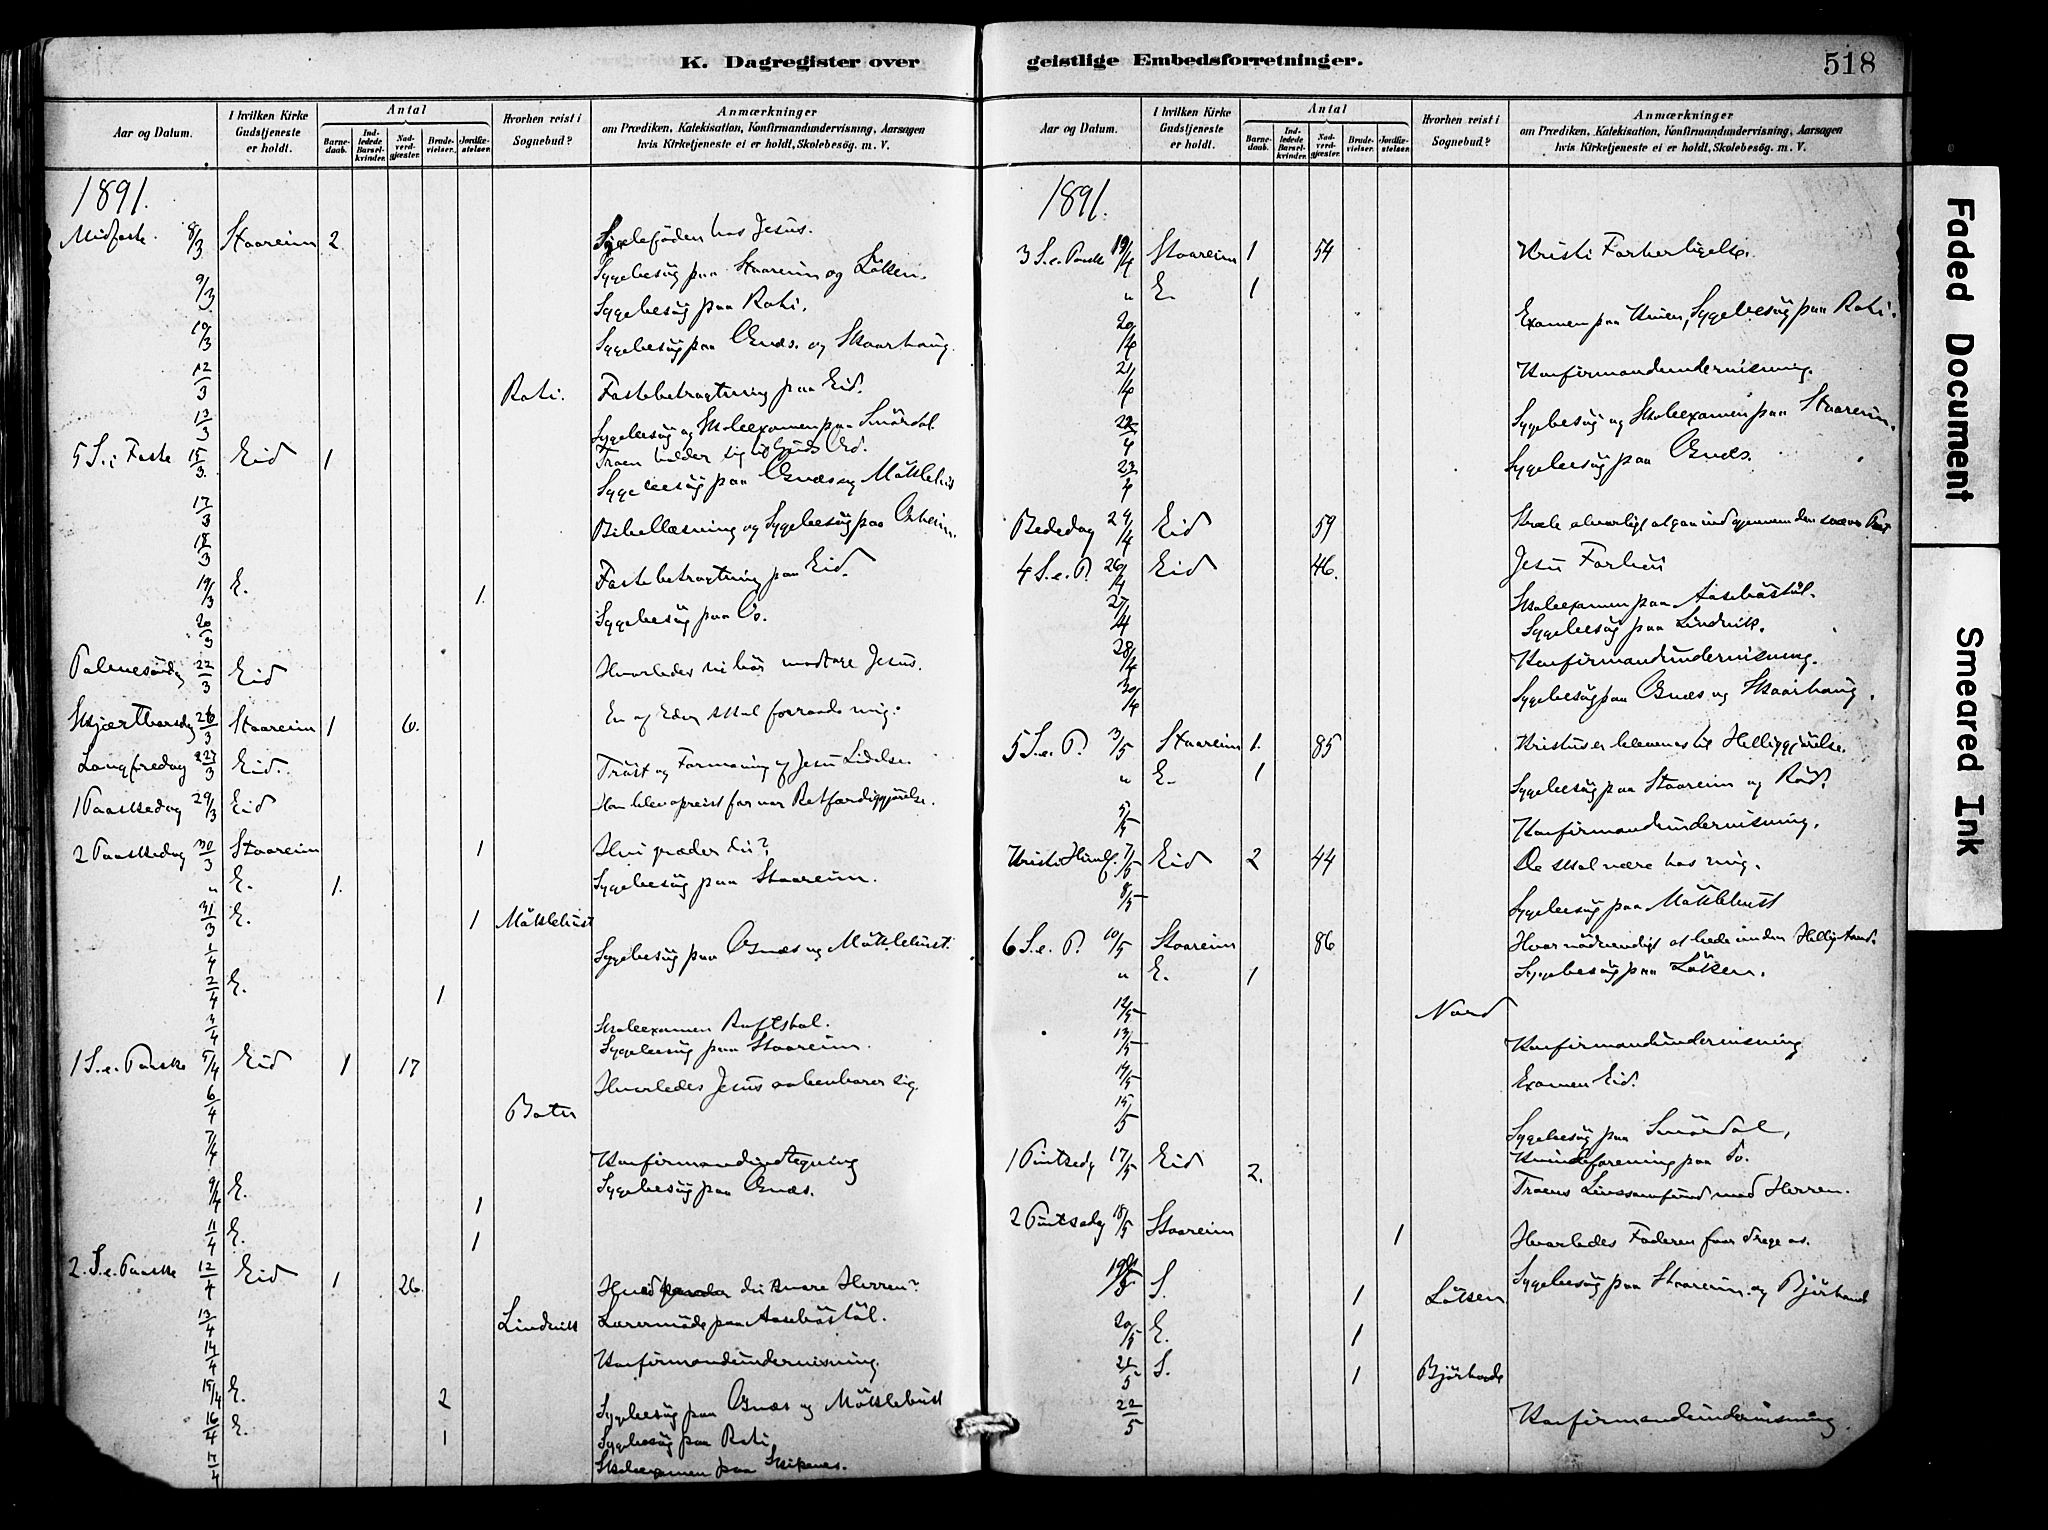 K. Dagregister over
Aar og Datum.
I hvilken Kirke Gudstjeneste er holdt.
Antal
Barnedaab.
Indledede Barselkvinder.
Nadverdgjæster.
Brudevielser.
Jordfæstelser.
Hvorhen reist i Sognebud?
Anmærkninger
om Prædiken, Katekisation, Konfirmandundervisning, Aarsagen
hvis Kirketjeneste ei er holdt, Skolebesøg. m. V.
1891.
Midfaste 8/3 Staareim 2 Syge hos Jesus.
Sygebesøg paa Staareim og Løkken.
9/3 Sygebesøg paa Roti.
10/3 Sygebesøg paa Gnæs. og Skaarhaug.
12/3 Roti. Fastebetragtning paa Eid.
13/3 Sygebesøg og Skoleexamen paa Smørdal.
5 S. i Faste 15/3 Eid 1 Troen holder sig til Guds Ord.
Sygebesøg paa Gnæs og Møklebust
17/3 Bibellæsning og Sygebesøg paa
18/3 Fastebetragtning paa Eid.
19/3 E. 1.
20/3 Sygebesøg paa Os.
Palmesøndag 22/3 Eid Hvorledes vi bør modtage Jesus.
Skjærthorsdag 26/3 Staareim 1 6. En af Eder skal forraade mig.
Langfredag 27/3 Eid. Trøst og Formaning af Jesu Lidelse.
1 Paaskedag 29/3 Eid Han blev opreist for vor Retfærdiggjørelse.
2 Paaskedag 30/3 Staareim 1 Hvi græder du?
" E. 1. Sygebesøg paa Staareim.
31/3 E. 1 Møklebust
1/4 Sygebesøg paa Gnæs og Møklebust.
2/4 E. 1
3/4 Skoleexamen
Sygebesøg paa Staareim.
1 S. e. Paaske 5/4 Eid 1 17 Hvorledes Jesus aabenbarer sig.
6/4
7/4 Konfirmandindtegning
Sygebesøg paa Gnæs.
9/4 E. 1
11/4 E. 1
2. S. e. Paaske 12/4 Eid 1 26 Hvad du svare Herren?
13/4 Lindvik Lærermøde paa Aasebøstøl.
14/4 Konfirmandundervisning.
15/4 E. 2 Sygebesøg paa Gnæs og Møklebust
16/4 E. 1 Sygebesøg paa Roti
17/4 Skoleexamen paa
geistlige Embedsforretninger.
518
Aar og Datum.
I hvilken Kirke Gudstjeneste er holdt.
Antal
Barnedaab.
Indledede Barselkvinder.
Nadverdgjæster.
Brudevielser.
Jordfæstelser.
Hvorhen reist i Sognebud?
Anmærkninger
om Prædiken, Katekisation, Konfirmandundervisning, Aarsagen
hvis Kirketjeneste ei er holdt, Skolebesøg. m. V.
1891.
3 S. e. Paaske 19/4 Staareim 1 54 Kristi Forherligelse.
" E. 1
20/4 Examen paa Sygebesøg paa Roti.
21/4 Konfirmandundervisning.
22/4 Sygebesøg og Skoleexamen paa Staareim.
23/4 Sygebesøg paa Gnæs.
Bededag 24/4 Eid 59 alvorligt at gaa ind gjennem den snævre Port
4 S. e. P. 26/4 Eid 46. Jesu
27/4 Skoleexamen paa Aasebøstøl.
Sygebesøg paa Lindvik.
28/4 Konfirmandundervisning.
30/4 Sygebesøg paa Gnæs og Skaarhaug.
5 S. e. P. 3/5 Staareim 1. 85 Kristus er til Helliggjørelse.
" E. 1 Sygebesøg paa Staareim og
5/5 Konfirmandundervisning.
Kristi Himlf. 7/5 Eid 2 44 De skal være hos mig.
8/5 Sygebesøg paa Møklebust
6 S. e. P. 10/5 Staareim 86 Hvor nødvendigt at bede om den Hellig Aand.
" E. 1 Sygebesøg paa Løkken.
12/5 Nord
13/5 Konfirmandundervisning
14/5 Examen Eid.
15/5 Sygebesøg paa Smørdal,
Kvindeforening paa
1 Pintsedg 17/5 Eid 2. Troens Livssamfund med Herren.
2 Pintsedg 18/5 Staareim 1 Hvorledes Faderen faar drage os.
19/5 S. 1 Løkken Sygebesøg paa Staareim og
20/5 E. 1
21/5 S. 1
22/5 Konfirmandundervisning.
Faded Document
Smeared Ink